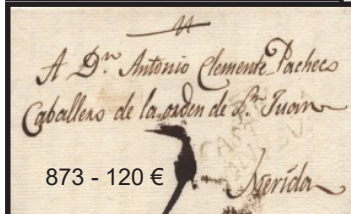 A Dn. Antonio Clemente Pacheco
Caballero de la orden de Sn. Juan
873 - 120 €
Merida